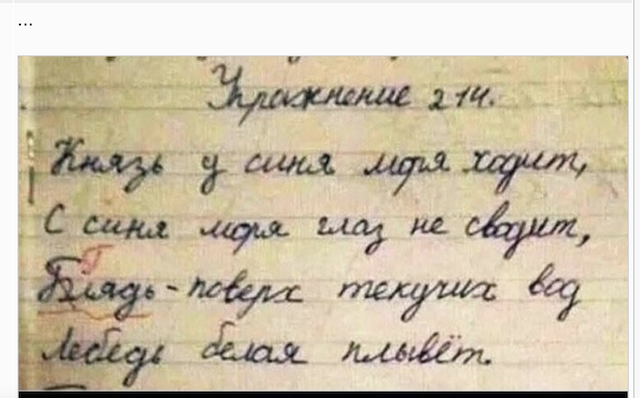 ...
Упражнение 214.
Князь у синя моря ходит,
С синя моря глаз не сводит,
Г
Блядь - поверх текучих вод
Лебедь белая плывёт.